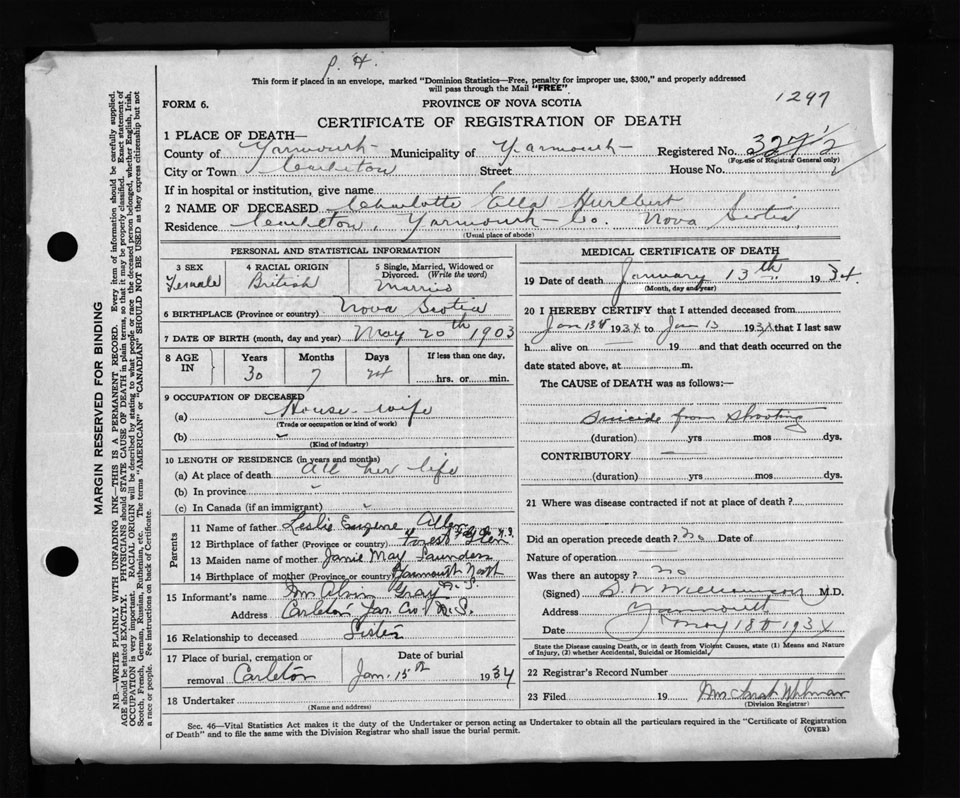 P. H.
This form if placed in an envelope, marked "Dominion Statistics—Free, penalty for improper use, $300," and properly addressed
will pass through the Mail "FREE".
1297
FORM 6.
PROVINCE OF NOVA SCOTIA
CERTIFICATE OF REGISTRATION OF DEATH
1 PLACE OF DEATH—
County of Yarmouth Municipality of Yarmouth Registered No.
(For use of Registrar General only)
City or Town Carleton Street House No.
If in hospital or institution, give name
2 NAME OF DECEASED Charlotte Ella Hurlbert
Residence Carleton, Yarmouth Co. Nova Scotia
(Usual place of abode)
PERSONAL AND STATISTICAL INFORMATION
3 SEX Female
4 RACIAL ORIGIN British
5 Single, Married, Widowed or
Divorced. (Write the word)
Married
6 BIRTHPLACE (Province or country) Nova Scotia
7 DATE OF BIRTH (month, day and year) May 20th 1903
8 AGE IN
Years Months Days If less than one day,
30 7 hrs. or min.
9 OCCUPATION OF DECEASED
(a) House-wife
(Trade or occupation or kind of work)
(b)
(Kind of industry)
10 LENGTH OF RESIDENCE (in years and months)
(a) At place of death All her life
(b) In province
(c) In Canada (if an immigrant)
Parents
11 Name of father Leslie Eugene Allen
12 Birthplace of father (Province or country) Forest Glen N.S.
13 Maiden name of mother Janie May Saunders
14 Birthplace of mother (Province or country) Yarmouth North N.S.
15 Informant's name Mrs Alvin Gray
Address Carleton Yar. Co. N.S.
16 Relationship to deceased Sister
17 Place of burial, cremation or
removal Carleton
Date of burial
Jan. 15th 1934
18 Undertaker
(Name and address)
MEDICAL CERTIFICATE OF DEATH
19 Date of death January 13th 1934.
(Month, day and year)
20 I HEREBY CERTIFY that I attended deceased from
Jan 13 1934 to Jan 13 1934 that I last saw
h alive on 19 and that death occurred on the
date stated above, at m.
The CAUSE of DEATH was as follows:—
Suicide from Shooting
(duration) yrs mos dys.
CONTRIBUTORY
(duration) yrs mos dys.
21 Where was disease contracted if not at place of death?
Did an operation precede death? No Date of
Nature of operation
Was there an autopsy? No
(Signed) M.D.
Address Yarmouth
Date 1934
State the Disease causing Death, or in death from Violent Causes, state (1) Means and Nature
of Injury, (2) whether Accidental, Suicidal or Homicidal.
22 Registrar's Record Number
23 Filed 19
(Division Registrar)
Sec. 46—Vital Statistics Act makes it the duty of the Undertaker or person acting as Undertaker to obtain all the particulars required in the "Certificate of Registration
of Death" and to file the same with the Division Registrar who shall issue the burial permit.
(OVER)
MARGIN RESERVED FOR BINDING
N.B.—WRITE PLAINLY WITH UNFADING INK—THIS IS A PERMANENT RECORD. Every item of information should be carefully supplied.
AGE should be stated EXACTLY. PHYSICIANS should STATE CAUSE OF DEATH in plain terms, so that it may be properly classified. Exact statement of
OCCUPATION is very important. RACIAL ORIGIN will be described by stating to what people or race the deceased person belonged, whether English, Irish,
Scotch, French, German, Russian, Ruthenian, etc. The terms "AMERICAN" or "CANADIAN" SHOULD NOT BE USED as they express citizenship but not
a race or people. See instructions on back of Certificate.